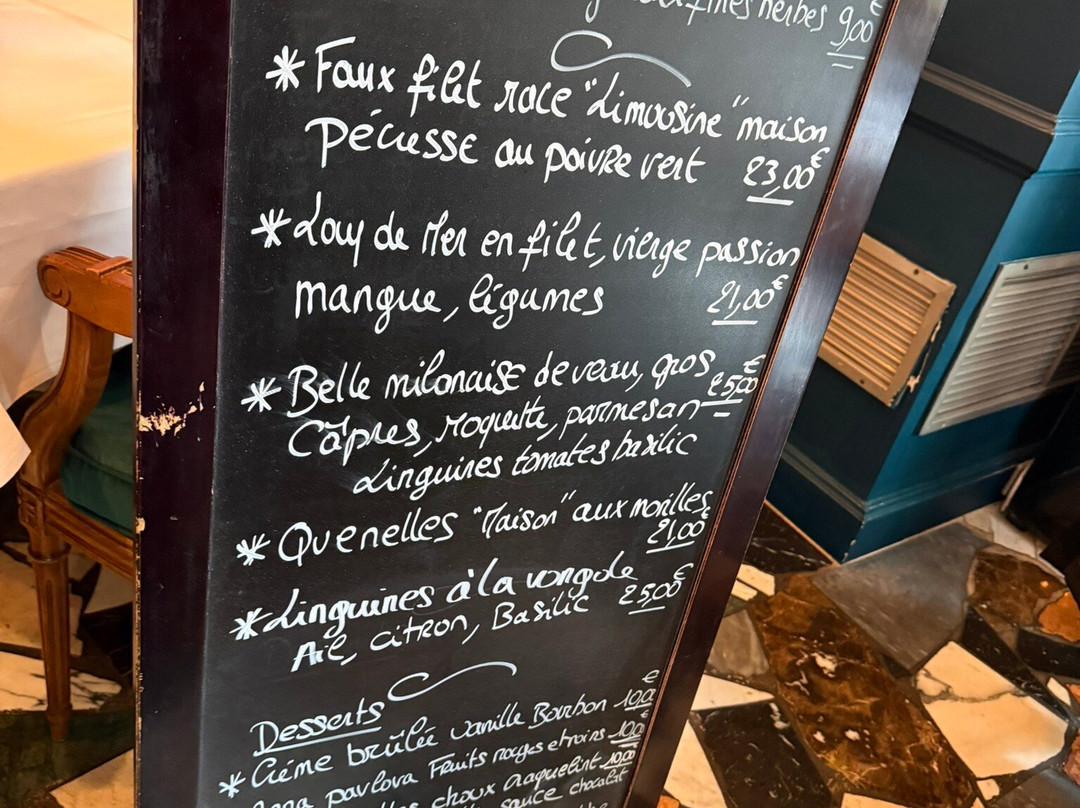 fines herbes 9,00€
* Faux filet race "Limousine" maison
Pécusse au poivre vert 23,00€
* Loup de Mer en filet, vierge passion
mangue, légumes 21,00€
* Belle milanaise de veau, gros 25,00€
Câpres, roquette, parmesan
Linguines tomates basilic
* Quenelles "Maison" aux morilles
21,00€
* Linguines à la vongole
Ail, citron, Basilic 25,00€
Desserts
* Crème brûlée vanille Bourbon 10,0 €
pavlova Fruits rouges et 10,0 €
choux craquelint 10,00€
sauce chocolat